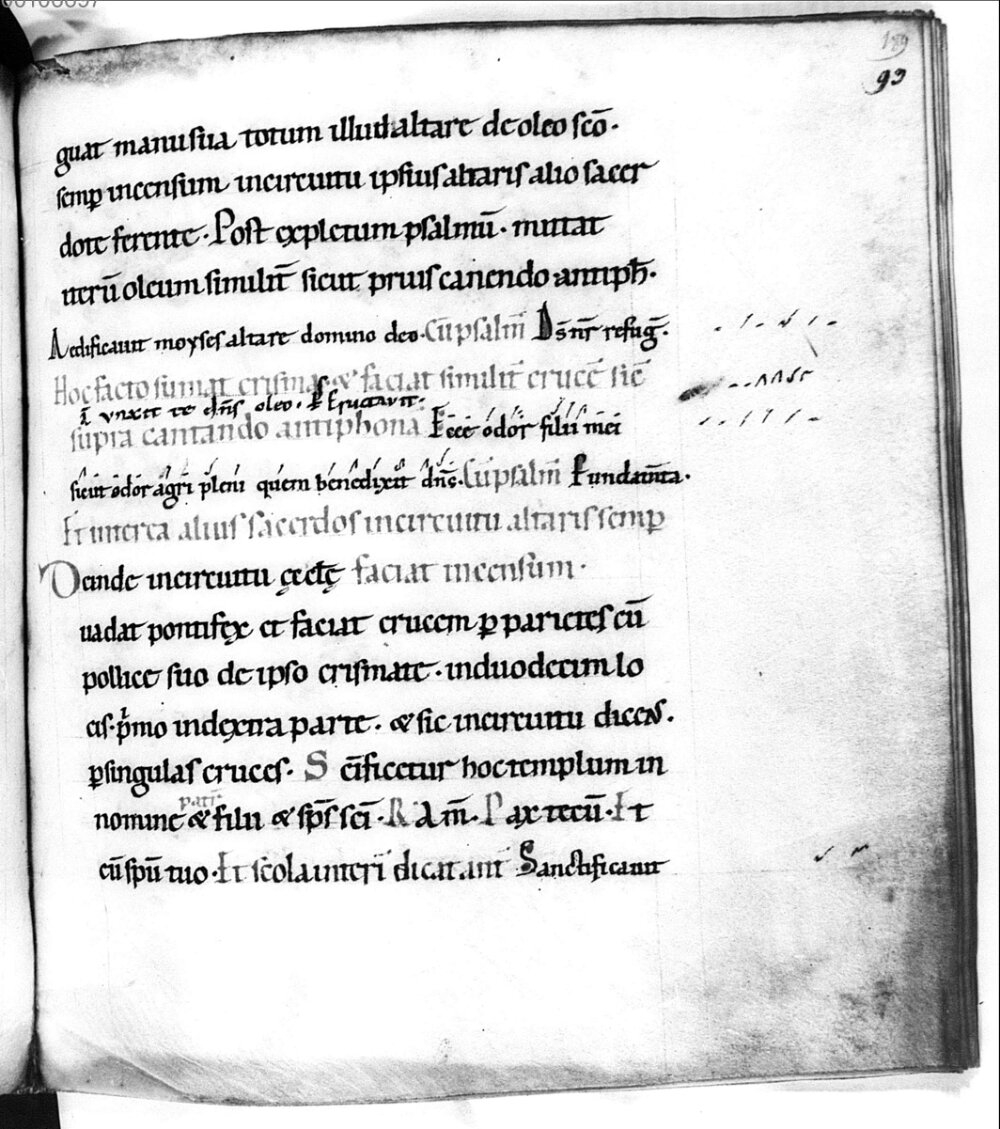 189
93
guat manu sua totum illud altare de oleo sc̄o.
semꝑ incensum in circuitu ipsius altaris alio sacer
dote ferente. Post expletum psalmū. mittat
iterū oleum similit̄ sicut prius canendo antiph̄.
Aedificauit moyses altare domino deo. Cū psalm̄ D̄s nr̄ refuḡ.
Hoc facto sumat crisma & faciat similit̄ crucē sic̄
vnxit te dn̄s oleo. p̄s Eructauit.
supra cantando antiphona Ecce odor filii mei
sicut odor agri pleni quem benedixit dn̄s. Cū psalm̄ Fundam̄ta.
Et interea alius sacerdos in circuitu altaris semꝑ
Deinde in circuitu ęcclę faciat incensum.
uadat pontifex et faciat crucem ꝑ parietes cū
pollice suo de ipso crismate. in duodecim lo
cis. p̄mo in dextra parte. & sic in circuitu dicens.
ꝑ singulas cruces. S c̄ificetur hoc templum in
patr̄
nomine & filii & sp̄s sc̄i. R Am̄. Pax tecū. Et
cū sp̄u tuo. Et scola interī dicat ant̄ Sanctificauit